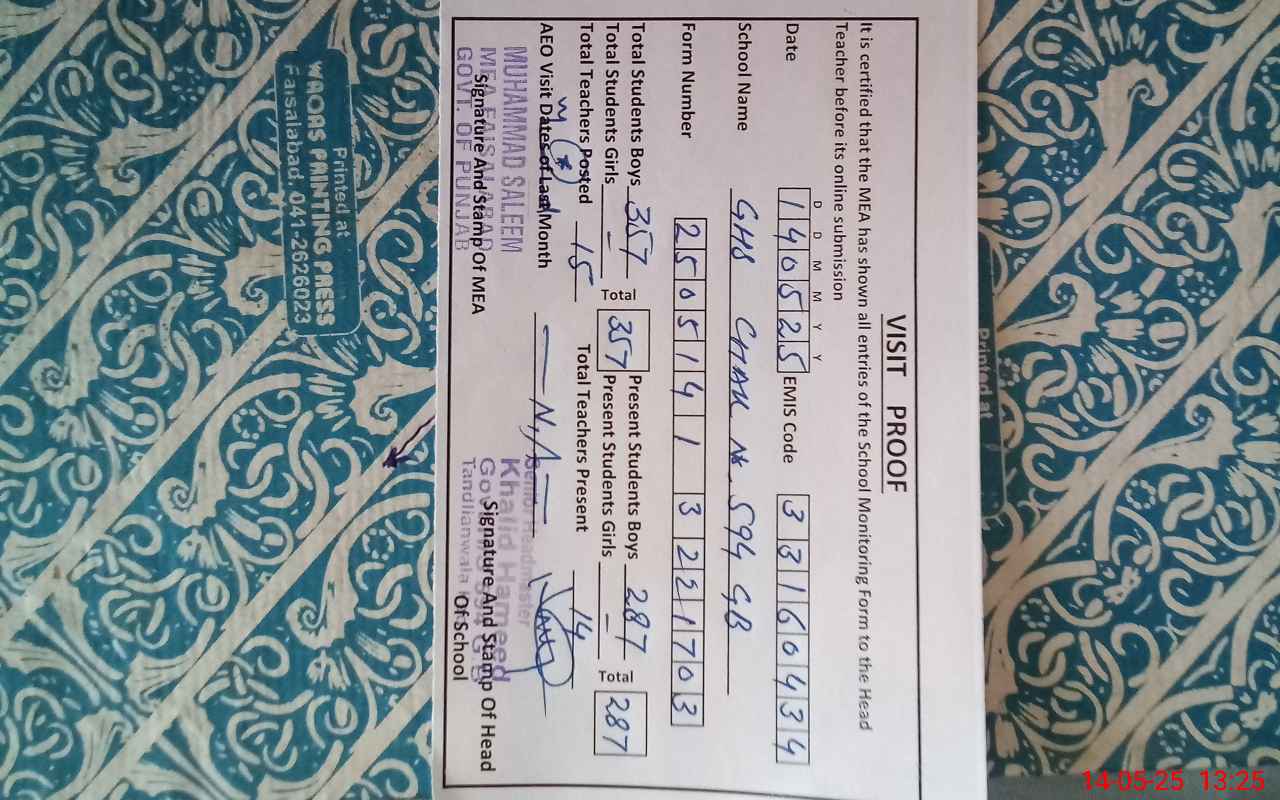 VISIT PROOF
It is certified that the MEA has shown all entries of the School Monitoring Form to the Head
Teacher before its online submission
D D M M Y Y
Date 140525 EMIS Code 33160434
School Name GHS CHAK No. 594 GB
Form Number 250514 1 3221703
Total Students Boys 357 Total 357 Present Students Boys 287 Total 287
Total Students Girls - Present Students Girls -
Total Teachers Posted 15 Total Teachers Present 14
AEO Visit Dates of Last Month — N/A —
MUHAMMAD SALEEM
MEA FAISALABAD
GOVT. OF PUNJAB
Signature And Stamp Of MEA
Senior Headmaster
Khalid Hameed
Tandlianwala
Signature And Stamp Of Head
Of School
Printed at
WAQAS PRINTING PRESS
Faisalabad. 041-2626023
Printed at
14-05-25 13:25